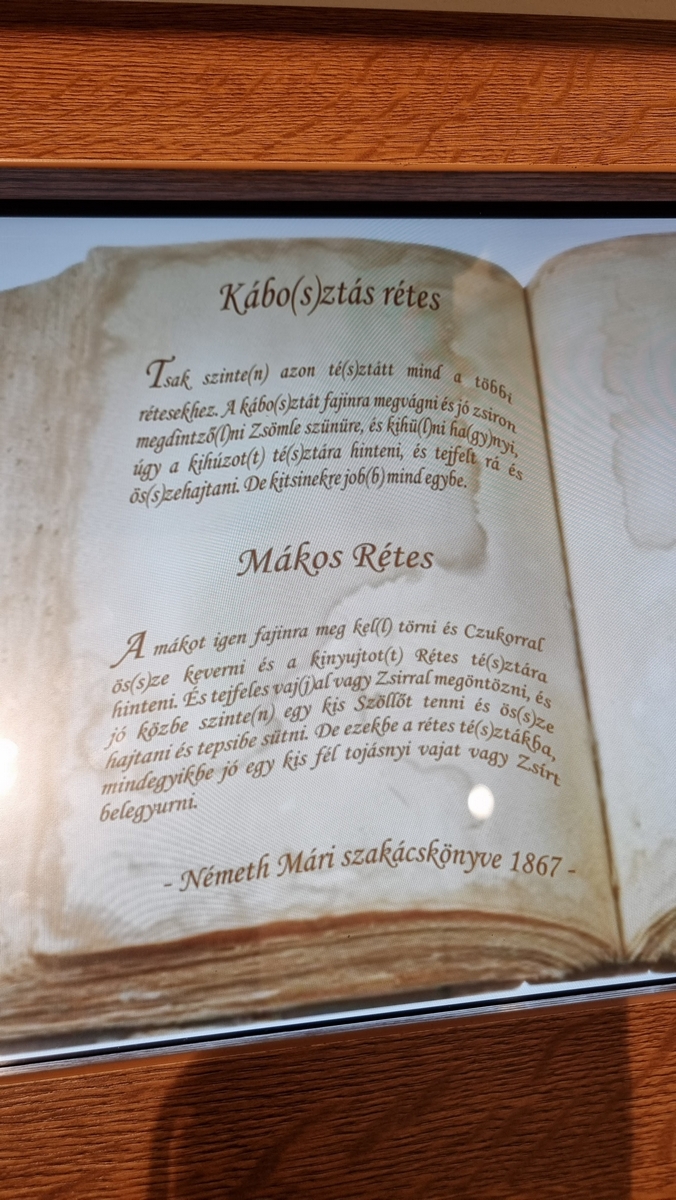 Kábo(s)ztás rétes
Tsak szinte(n) azon té(s)ztátt mind a többi
rétesekhez. A kábo(s)ztát fajinra megvágni és jó zsiron
megdintző(l)ni Zsömle szünüre, és kihü(l)ni ha(gy)nyi,
úgy a kihúzot(t) té(s)ztára hinteni, és tejfelt rá és
ös(s)zehajtani. De kitsinekre job(b) mind egybe.
Mákos Rétes
A mákot igen fajinra meg kel(l) törni és Czukorral
ös(s)ze keverni és a kinyujtot(t) Rétes té(s)ztára
hinteni. És tejfeles vaj(j)al vagy Zsirral megöntözni, és
jó közbe szinte(n) egy kis Szöllőt tenni és ös(s)ze
hajtani és tepsibe sütni. De ezekbe a rétes té(s)ztákba,
mindegyikbe jó egy kis fél tojásnyi vajat vagy Zsírt
belegyurni.
- Németh Mári szakácskönyve 1867 -